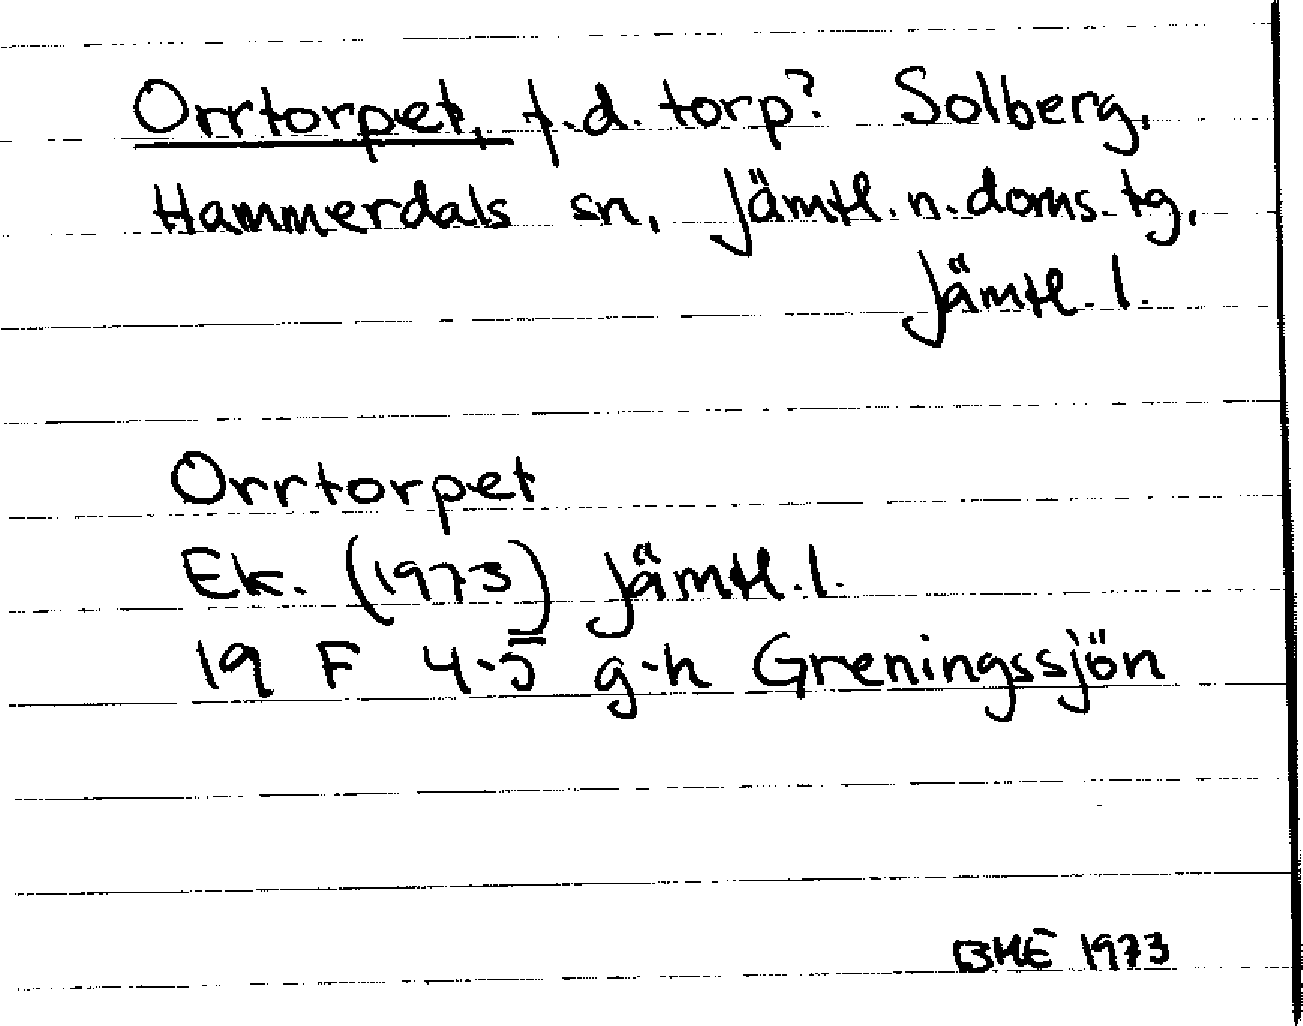 Orrtorpet, f.d. torp? Solberg,
Hammerdals sn, Jämtl. n. doms. tg,
Jämtl. l.
Orrtorpet
Ek. (1973) Jämtl. l.
19 F 4-5 g-h Greningssjön
BHE 1973